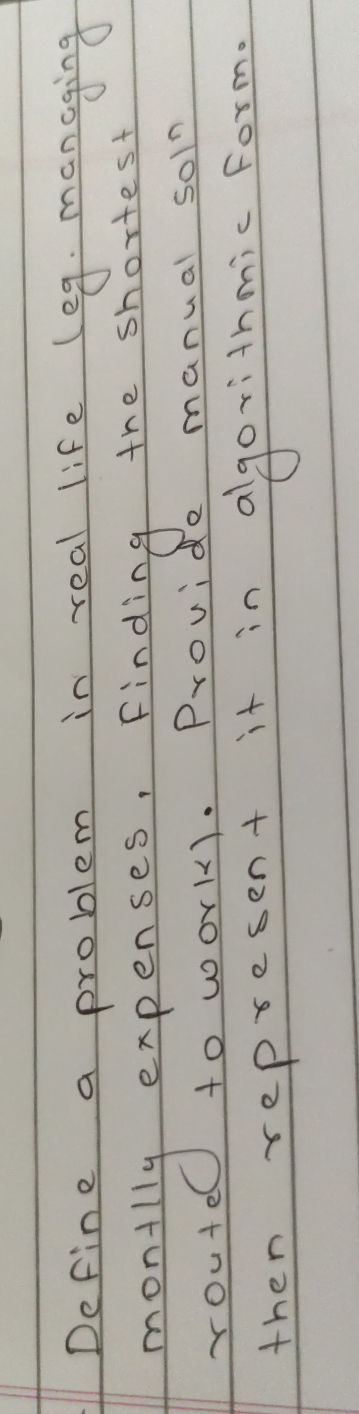 Define a problem in real life (eg. managing
montlly expenses, finding the shortest
route to work). Provide manual soln
then represent it in algorithmic form.